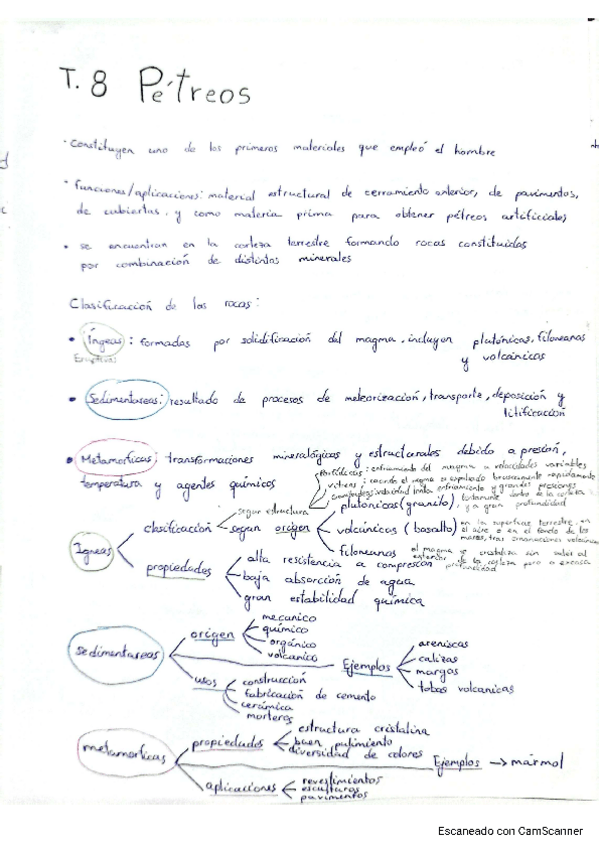 T. 8 Pétreos
· Constituyen uno de los primeros materiales que empleó el hombre
· funciones/aplicaciones: material estructural de cerramiento exterior, de pavimentos,
de cubiertas, y como materia prima para obtener pétreos artificiales
· se encuentran en la corteza terrestre formando rocas constituidas
por combinación de distintos minerales
Clasificación de las rocas:
· Ígneas: formadas por solidificación del magma, incluyen plutónicas, filoneanas
Eruptivas
y volcánicas
· Sedimentareas: resultado de procesos de meteorización, transporte, deposición y
litificación
· Metamorficas: transformaciones mineralógicas y estructurales debido a presión,
temperatura y agentes químicos
Porfídicas: enfriamiento del magma a velocidades variables
vítreas: cuando el magma es expulsado bruscamente rapidamente
velocidad lenta enfriamiento y grandes presiones
Igneas
clasificación
segun estructura
segun origen
plutonicas (granito), lentamente dentro de la corteza
y a gran profundidad
volcánicas (basalto) en la superficie terrestre, en
el aire o en el fondo de los
mares, tras emanaciones volcánicas
filoneanas el magma se cristaliza sin salir al
exterior de la corteza pero a escasa
profundidad
propiedades
alta resistencia a compresión
baja absorción de agua
gran estabilidad química
sedimentareas
origen
mecanico
químico
orgánico
volcanico
usos
construcción
fabricación de cemento
cerámica
morteros
Ejemplos
areniscas
calizas
margas
tobas volcanicas
metamorficas
propiedades
estructura cristalina
buen pulimiento
diversidad de colores
Ejemplos → mármol
aplicaciones
revestimientos
esculturas
pavimentos
Escaneado con CamScanner